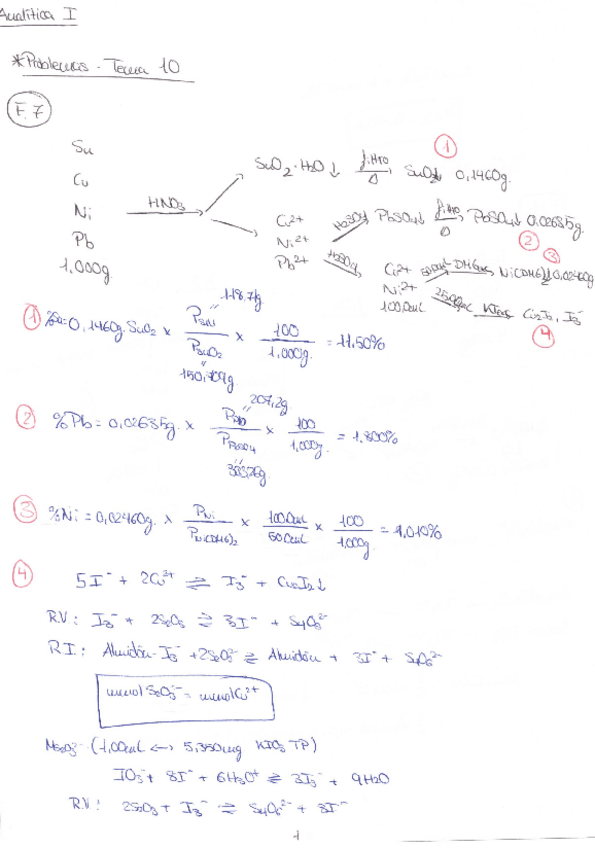 Analítica I
*Problemas - Tema 10
F.7
Sn
Cu
Ni
Pb
1,000g
HNO3
SnO2·H2O↓ f.HTO Δ SnO2↓ 0,1460g.
①
Cu2+
Ni2+
Pb2+
H2SO4 PbSO4↓ f.HTO Δ PbSO4↓ 0.02635g.
②
H2SO4
Cu2+
Ni2+
100.0mL
50.0mL DMGH2 Ni(DMG)2↓ 0,02460g
③
25.00mL KI exc Cu2I2, I3-
④
① %Sn=0,1460g.SnO2 × PSn/PSnO2 × 100/1,000g. = 11,50%
118.7g
150,709g.
② %Pb=0,02635g. × PPb/PPbSO4 × 100/1,000g. = 1.800%
207,2g
303,26g
③ %Ni=0,02460g. × PNi/PNi(DMG)2 × 100.0mL/50.0mL × 100/1,000g. = 1,010%
④ 5I- + 2Cu2+ ⇌ I3- + Cu2I2↓
RV: I3- + 2S2O3 ⇌ 3I- + S4O6 2-
RI: Almidón-I3- + 2S2O3 2- ⇌ Almidón + 3I- + S4O6 2-
mmol S2O3 2- = mmol Cu2+
(1,00mL <-> 5,350mg KIO3 TP)
IO3- + 8I- + 6H3O+ ⇌ 3I3- + 9H2O
RV: 2S2O3 + I3- ⇌ S4O6 2- + 3I-
1